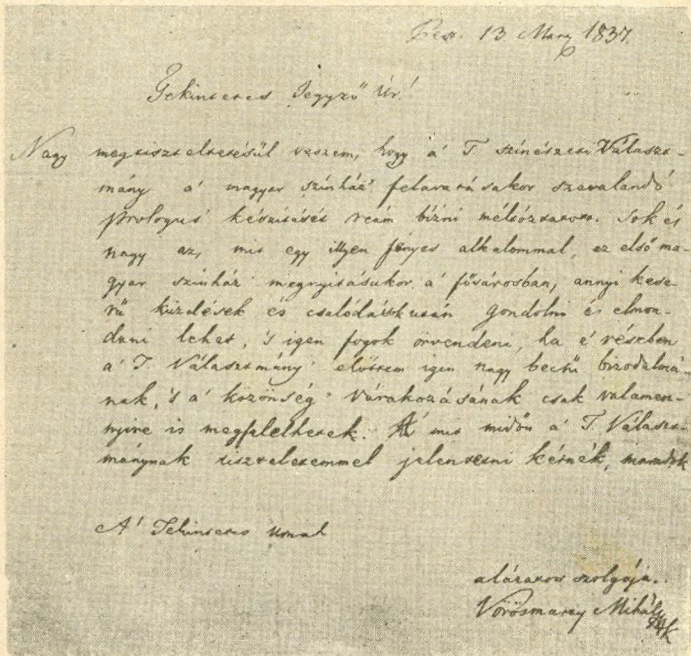 Pest. 13 Marz 1837.
Tekintetes Jegyző Úr!
Nagy megtiszteltetésül veszem, hogy a' T színészeti Választ-
mány a' magyar színház' felavatásakor szavalandó
prologus' készitését reám bízni méltóztatott. Sok és
nagy az, mit egy illyen fényes alkalommal, ez első ma-
gyar színház' megnyitásakor a' fővárosban, annyi kese-
rű küzdések és csalódások után gondolni és elmon-
dani lehet, 's igen fogok örvendeni, ha é részben
a' T Választmány' előttem igen nagy becsű bizodalmá-
nak, 's a' közönség' várakozásának csak valamen-
nyire is megfelelhetek. mit midőn a' T. Választ-
mánynak tiszteletemmel jelenteni kérnék, maradok
A' Tekintetes Urnak
alázatos szolgája.
Vörösmarty Mihály